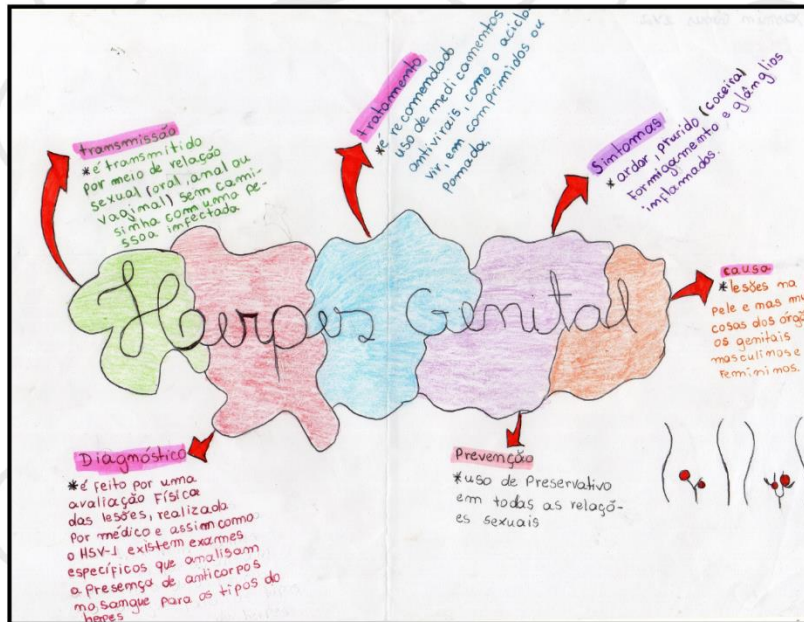 transmissão
*é transmitido
por meio de relação
sexual (oral, anal ou
vaginal) sem cami-
sinha com uma pe-
ssoa infectada
tratamento
*é recomendado
uso de medicamentos
antivirais, como o aciclo-
vir, em comprimidos ou
Pomada.
Sintomas
* ardor, prurido (coceira)
Formigamento e glânglios
inflamados.
Herpes Genital
causa
*lesões na
Pele e mas mu
cosas dos órgã
os genitais
masculinos e
Femininos.
Diagnóstico
*é feito por uma
avaliação Física
das lesões, realizada
Por médico e assim como
o HSV-1 existem exames
específicos que analisam
a Presença de anticorpos
no sangue para os tipos do
herpes
Prevenção
*uso de Preservativo
em todas as relaçõ-
es sexuais